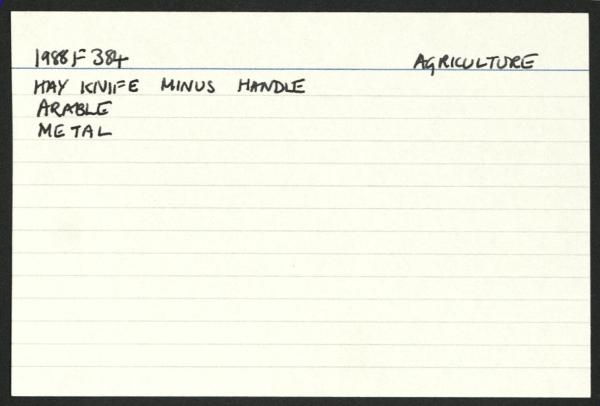 1988 F 384 AGRICULTURE
HAY KNIFE MINUS HANDLE
ARABLE
METAL